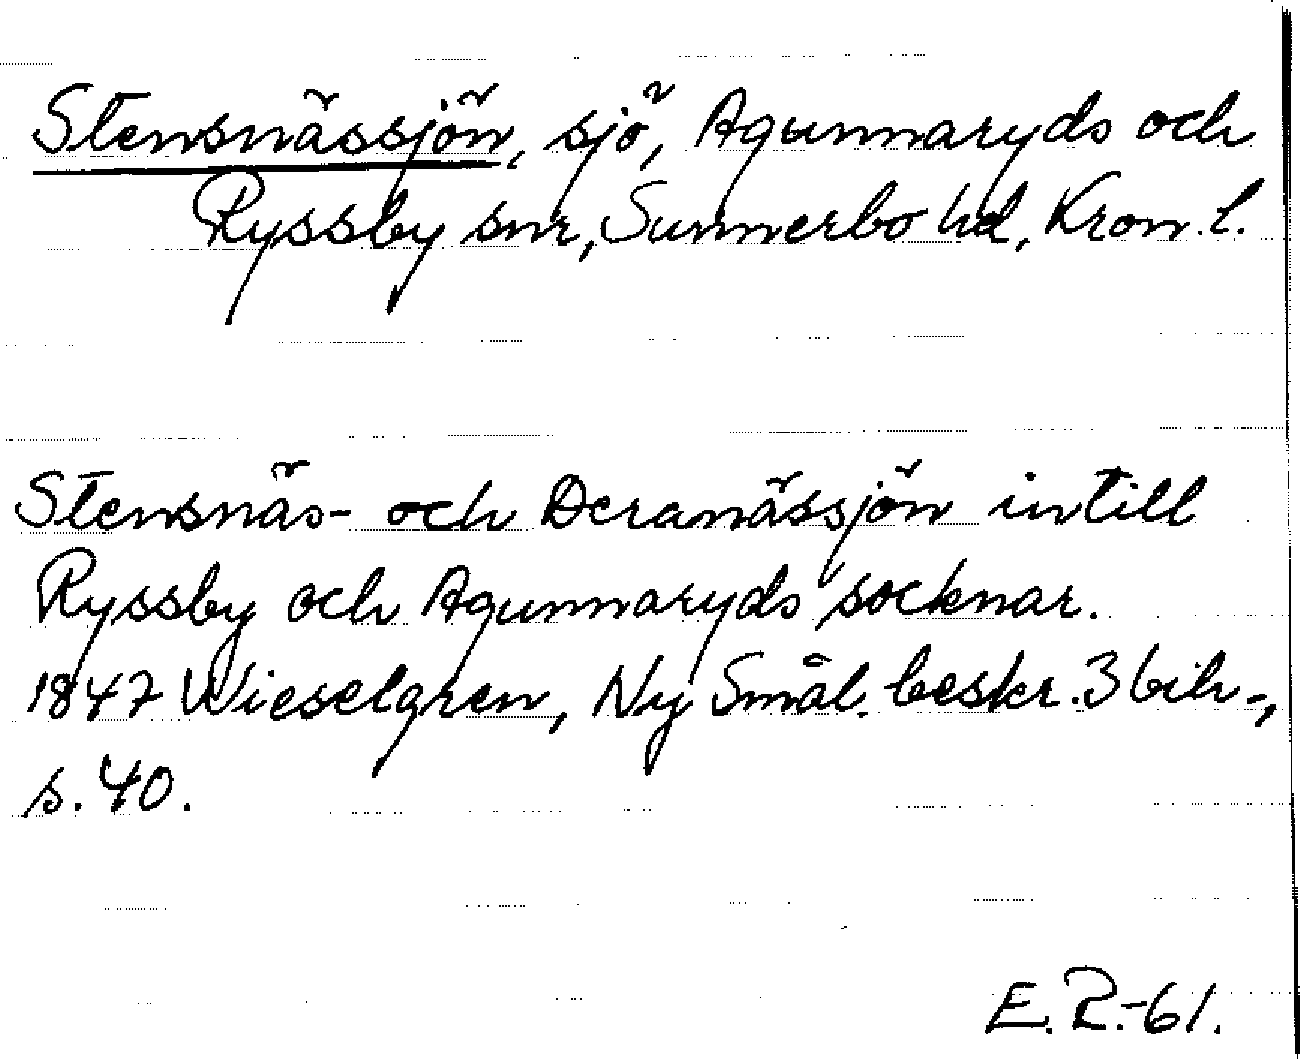 Stensnässjön, sjö, Agunnaryds och
Ryssby snr, Sunnerbo hd, Kron. l.
Stensnäs- och Deranässjön intill
Ryssby och Agunnaryds socknar.
1847 Wieselgren, Ny Smål. beskr. 3 bih.,
s. 40.
E. R.-61.